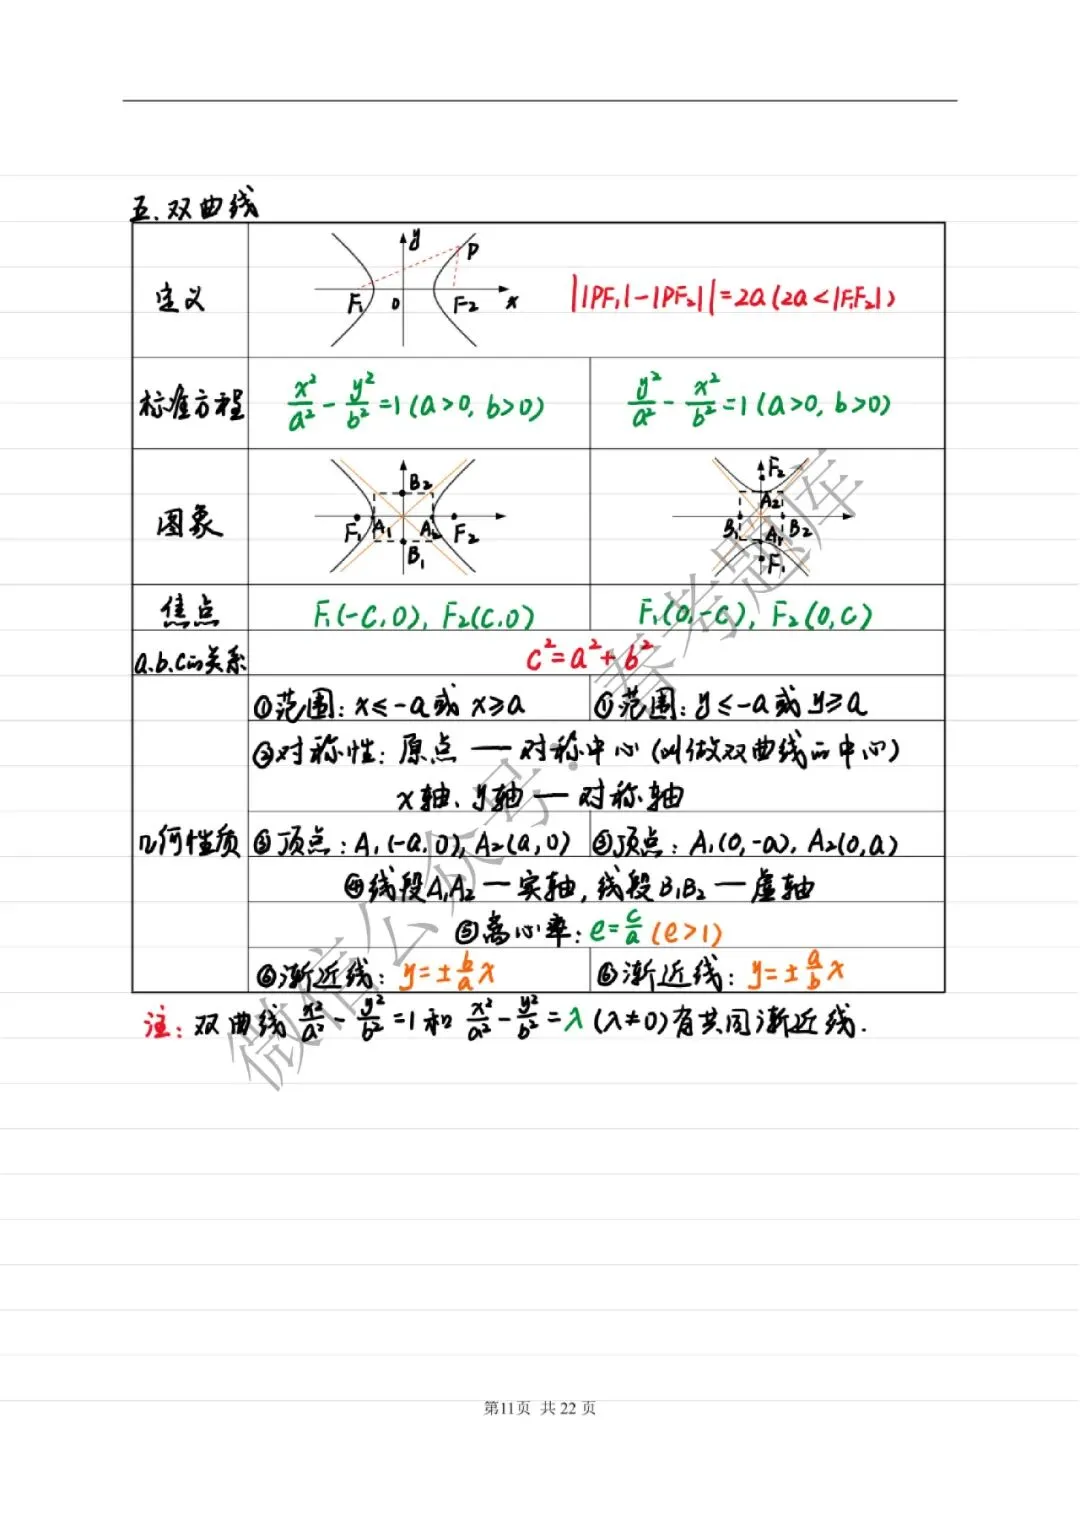 五.双曲线
定义
y
P
F₁ 0 F₂ x
||PF₁|-|PF₂||=2a(2a<|F₁F₂|)
标准方程
x²/a² - y²/b² =1(a>0, b>0)
y²/a² - x²/b² =1(a>0, b>0)
图象
B₂
F₁ A₁ A₂ F₂
B₁
F₂
A₂
B₁ B₂
A₁
F₁
焦点
F₁(-C,0), F₂(C,0)
F₁(0,-C), F₂(0,C)
a.b.c的关系
c²=a²+b²
几何性质
①范围: x≤-a或 x≥a
①范围: y≤-a或 y≥a
②对称性: 原点 — 对称中心 (叫做双曲线的中心)
x轴、y轴 — 对称轴
③顶点: A₁(-a,0), A₂(a,0)
③顶点: A₁(0,-a), A₂(0,a)
④线段A₁A₂ — 实轴, 线段B₁B₂ — 虚轴
⑤离心率: e=c/a (e>1)
⑥渐近线: y=±b/a x
⑥渐近线: y=±a/b x
注: 双曲线 x²/a² - y²/b² =1和 x²/a² - y²/b² =λ (λ≠0)有共同渐近线.
微信公众号:春考题库
第11页 共 22 页